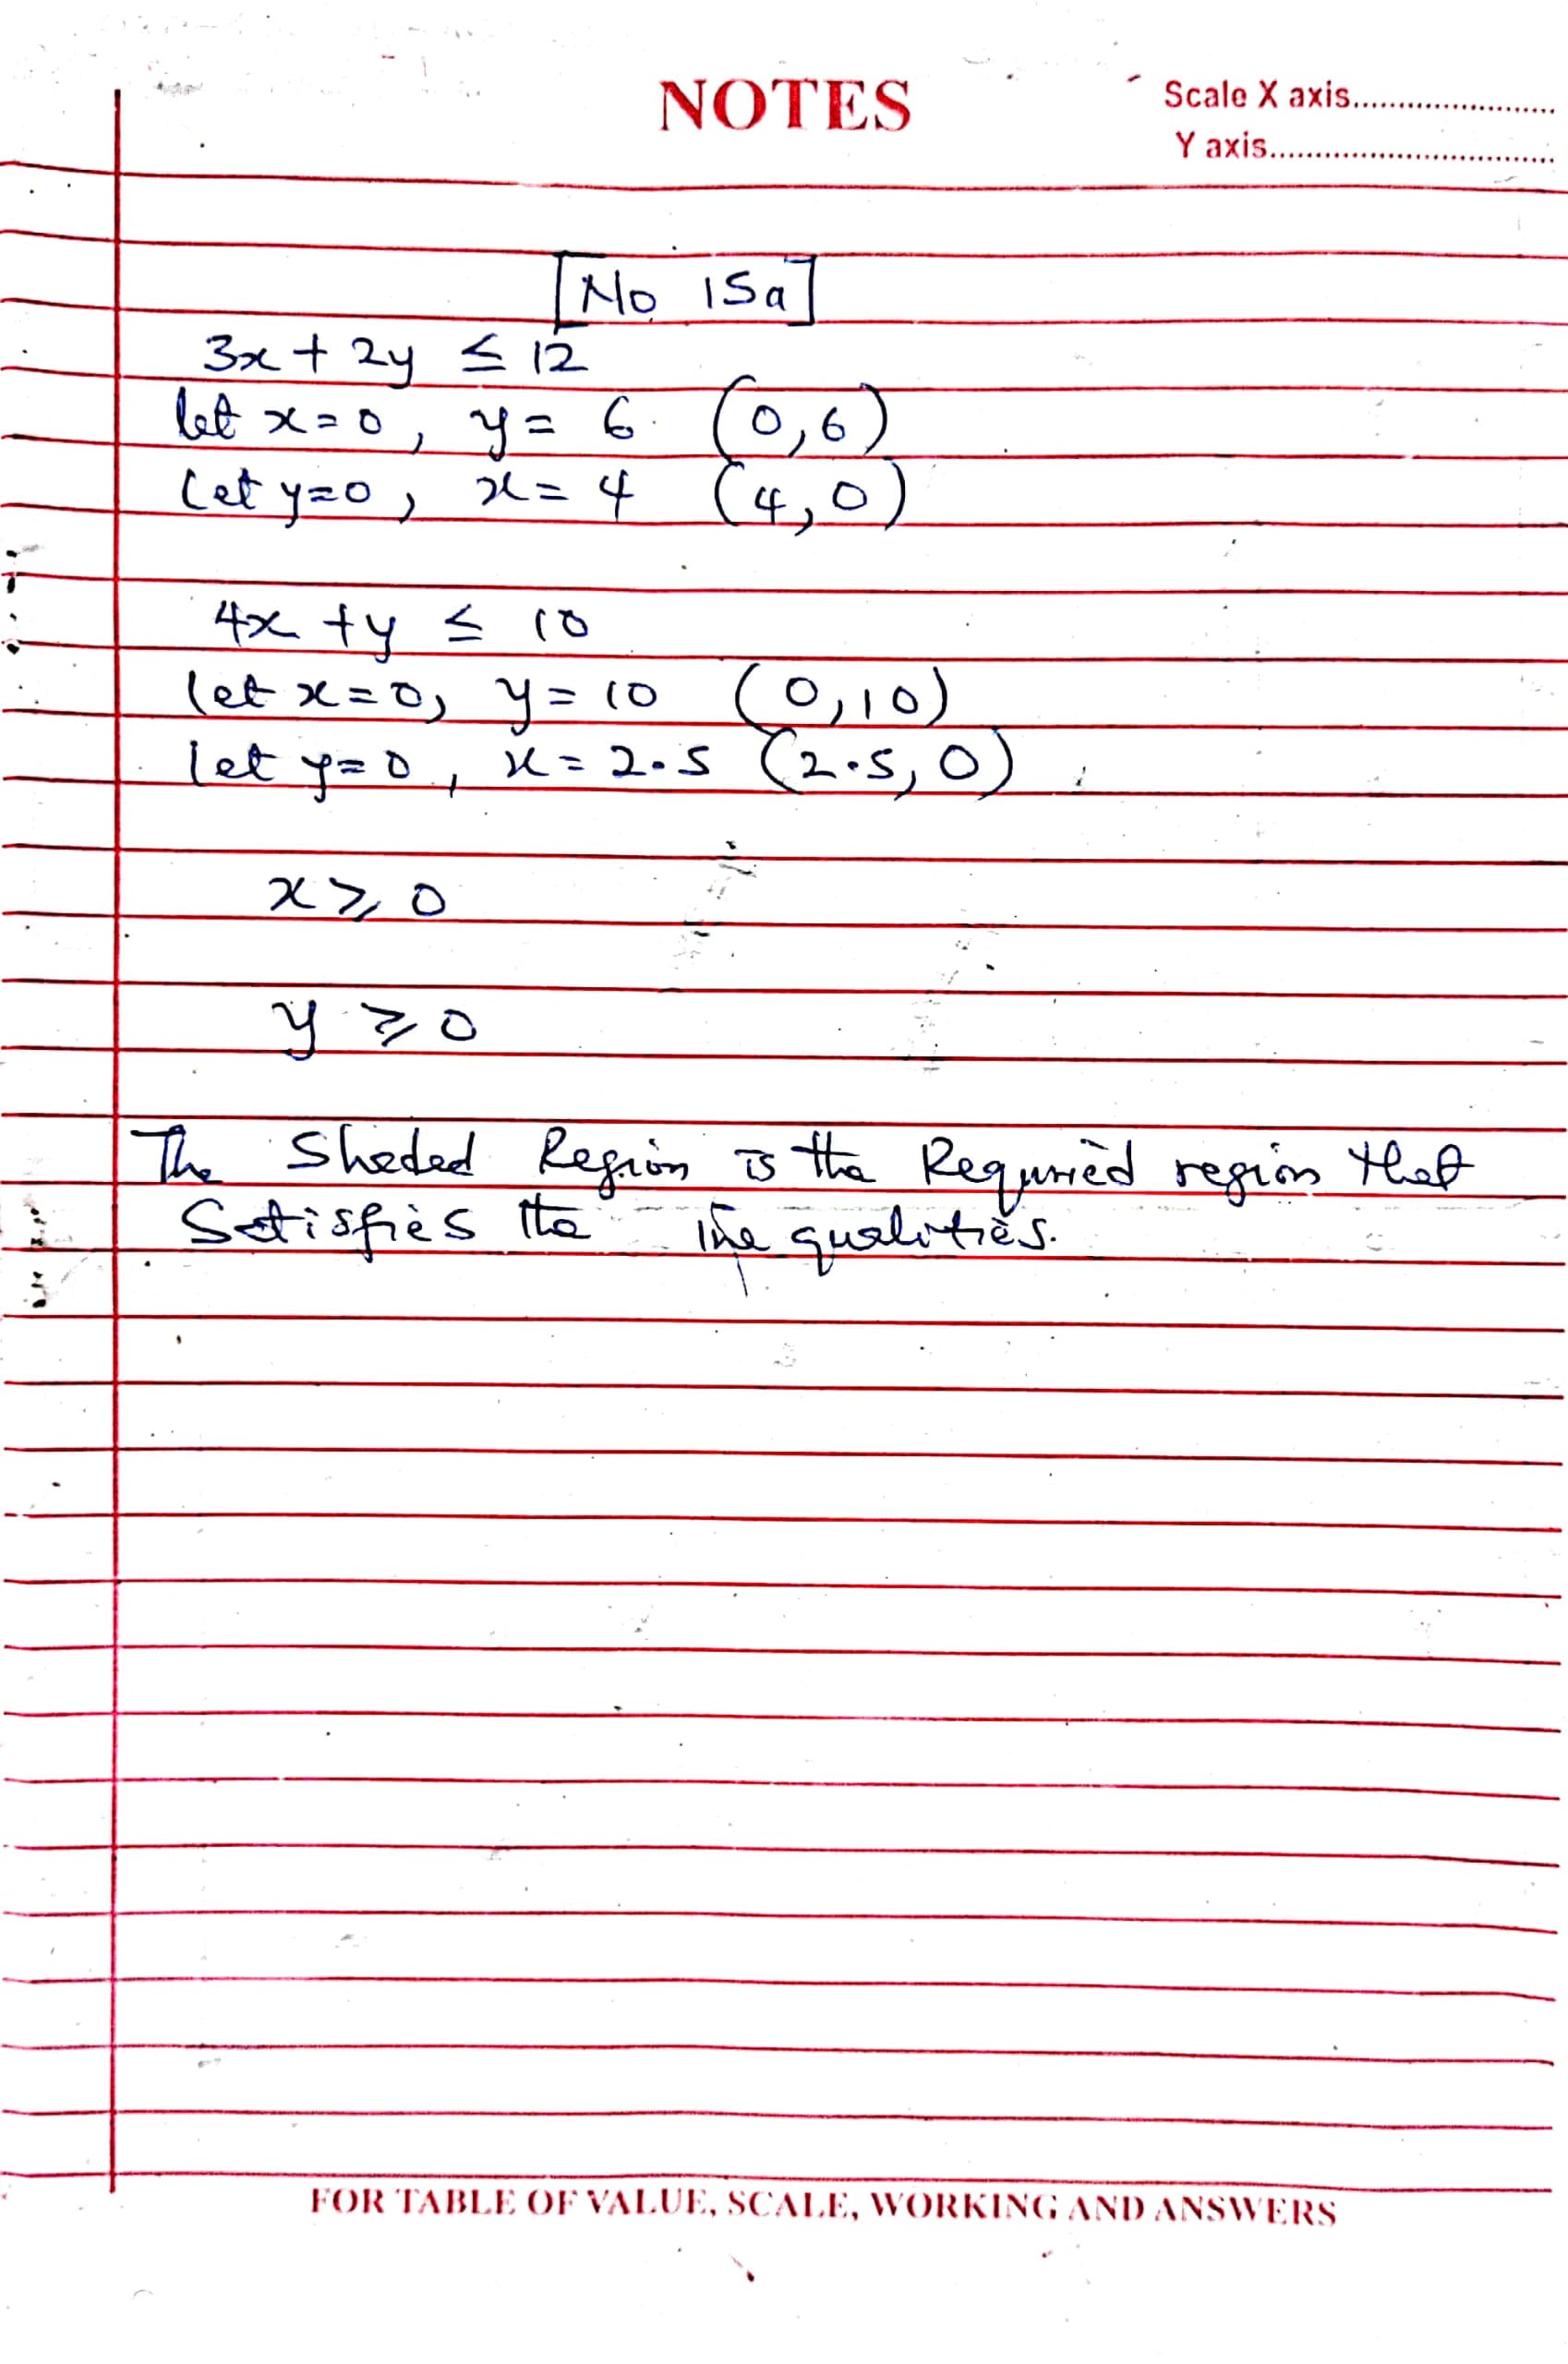 NOTES
Scale X axis......................
Y axis...............................
[No 15a]
3x + 2y ≤ 12
let x=0, y= 6 (0,6)
let y=0, x= 4 (4,0)
4x +y ≤ 10
let x=0, y=10 (0,10)
let y=0, x= 2.5 (2.5,0)
x ⩾ 0
y ⩾ 0
The Shaded Region is the Requried region that
Satisfies the inequalities.
FOR TABLE OF VALUE, SCALE, WORKING AND ANSWERS